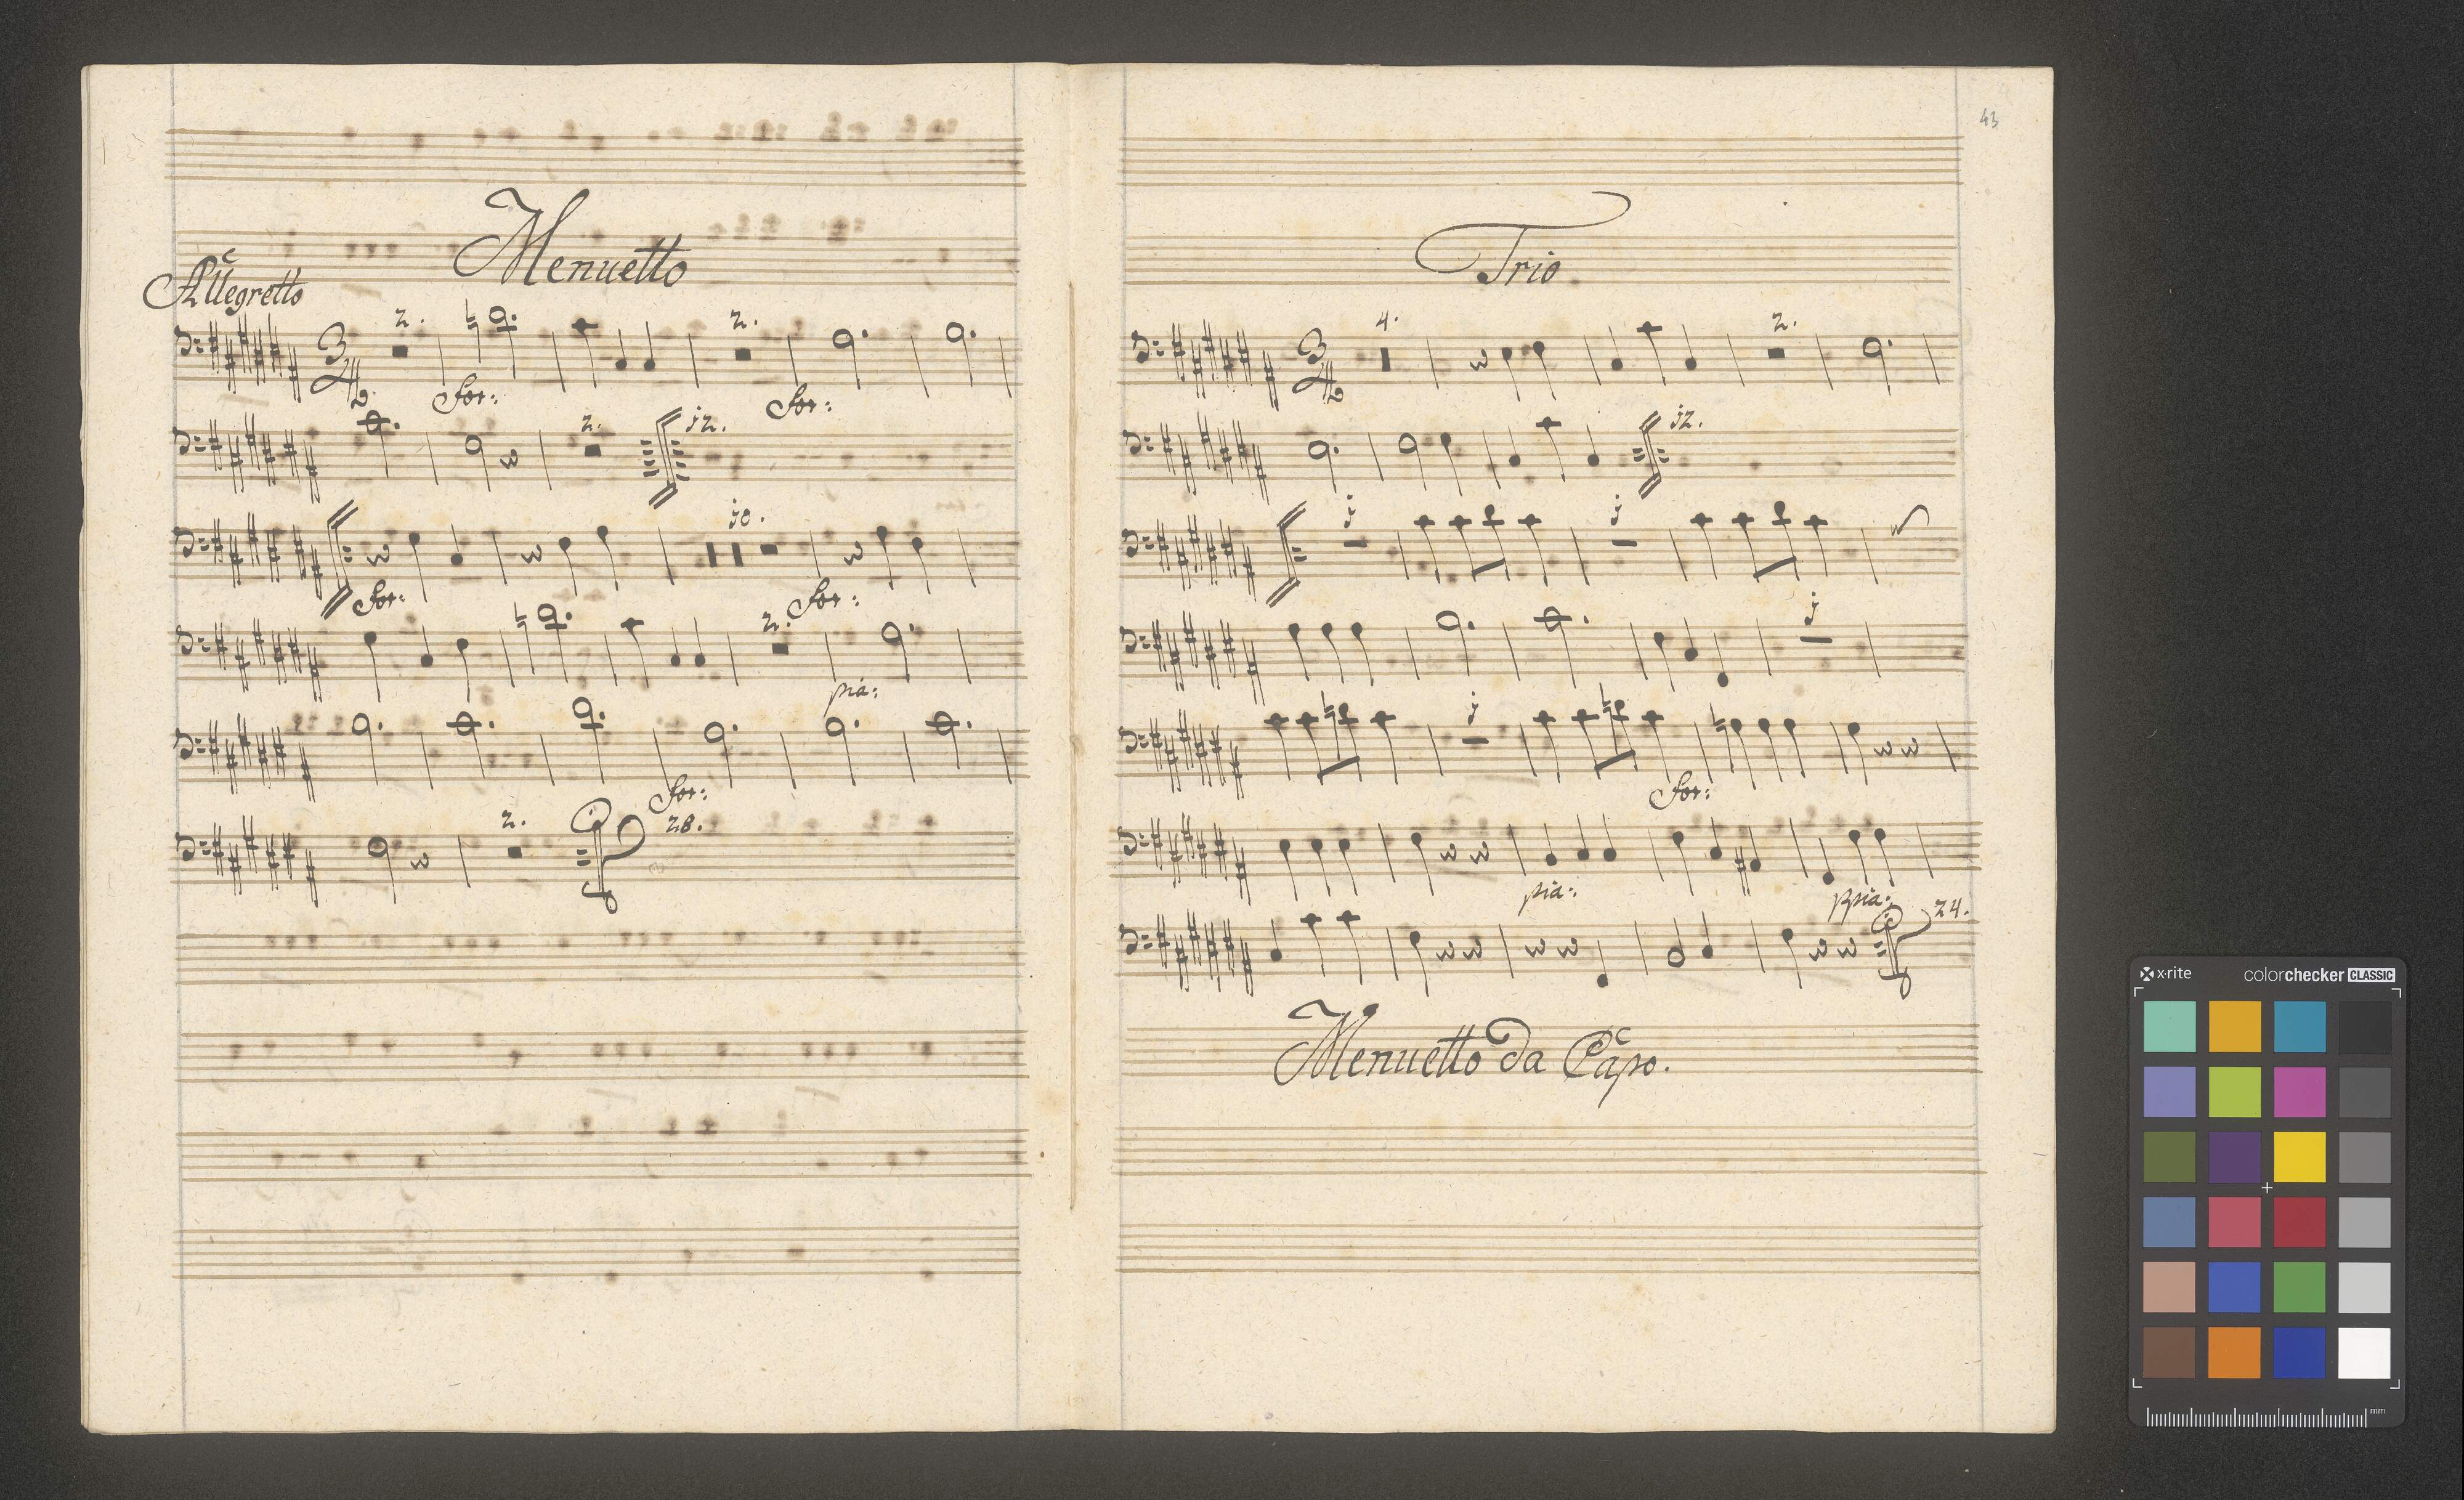 Menuetto
Allegretto
3/4 2. 2.
for: for:
2. 12.
10.
for: for:
2.
pia:
for:
2. 28.
43
Trio
3/4 4. 2.
12.
1 1
1
1
for:
pia: ppia:
24.
Menuetto Da Capo.
x·rite colorchecker CLASSIC
mm